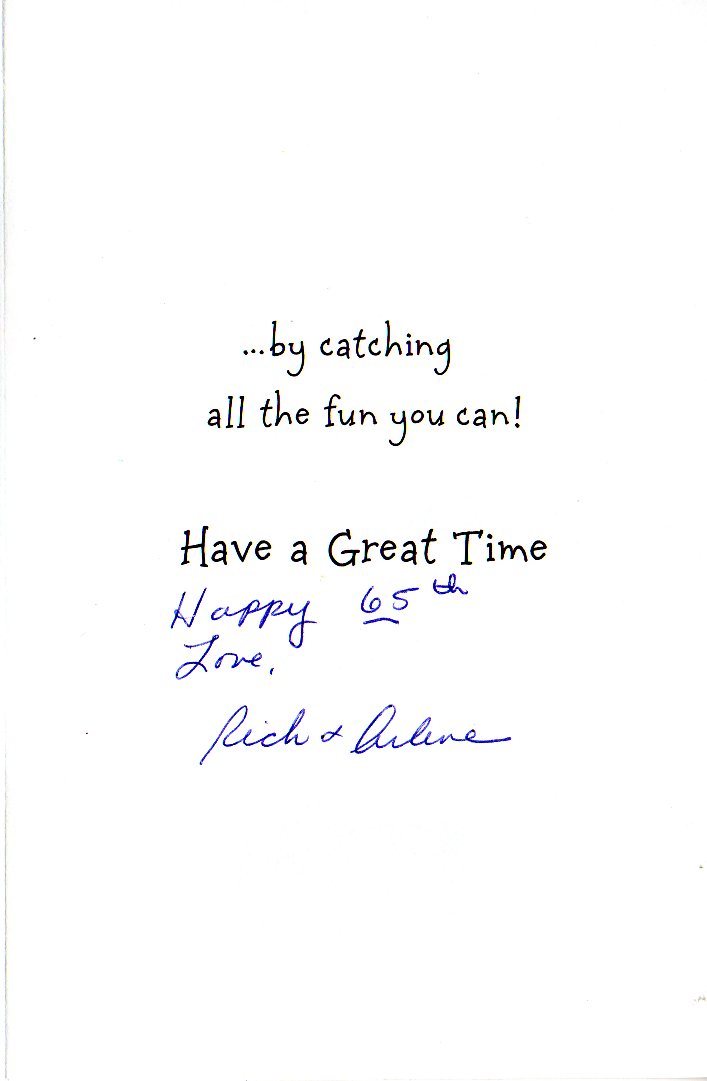 ...by catching
all the fun you can!
Have a Great Time
Happy 65th
Love,
Rich & Arlene